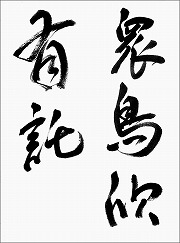 眾鳥欣
有託